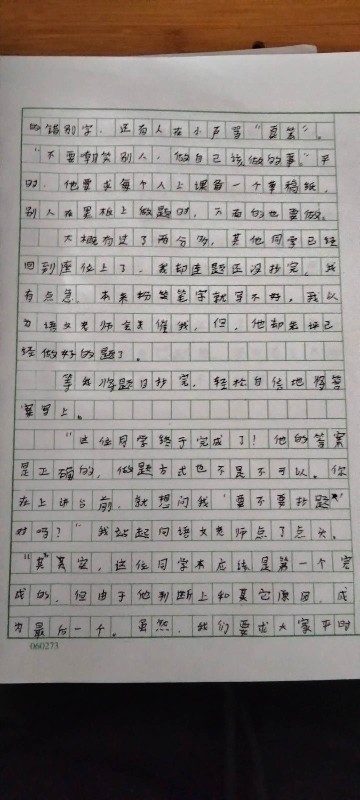 的错别字，还有人在小声骂“真笨”。
“不要嘲笑别人，做自己该做的事。”平
时，他要求每个人上课备一个草稿纸，
别人在黑板上做题时，下面的也要做。
大概构过了两分多，其他同学已经
回到座位上了，我却连题还没抄完。我
有点急。本来粉笔字就写不好，我以
为语文老师会来催我，但，他却先讲已
经做好的题了。
等我将题目抄完，轻松自信地将答
案写上。
“这位同学终于完成了！他的答案
是正确的，做题方式也不是不可以。你
在上讲台前，就想问我‘要不要抄题’
对吗？”我站起向语文老师点了点头。
“其实，这位同学本应该是第一个完
成的，但由于他判断上和其它原因，成
为最后一个。虽然，我们要求大家平时
060273